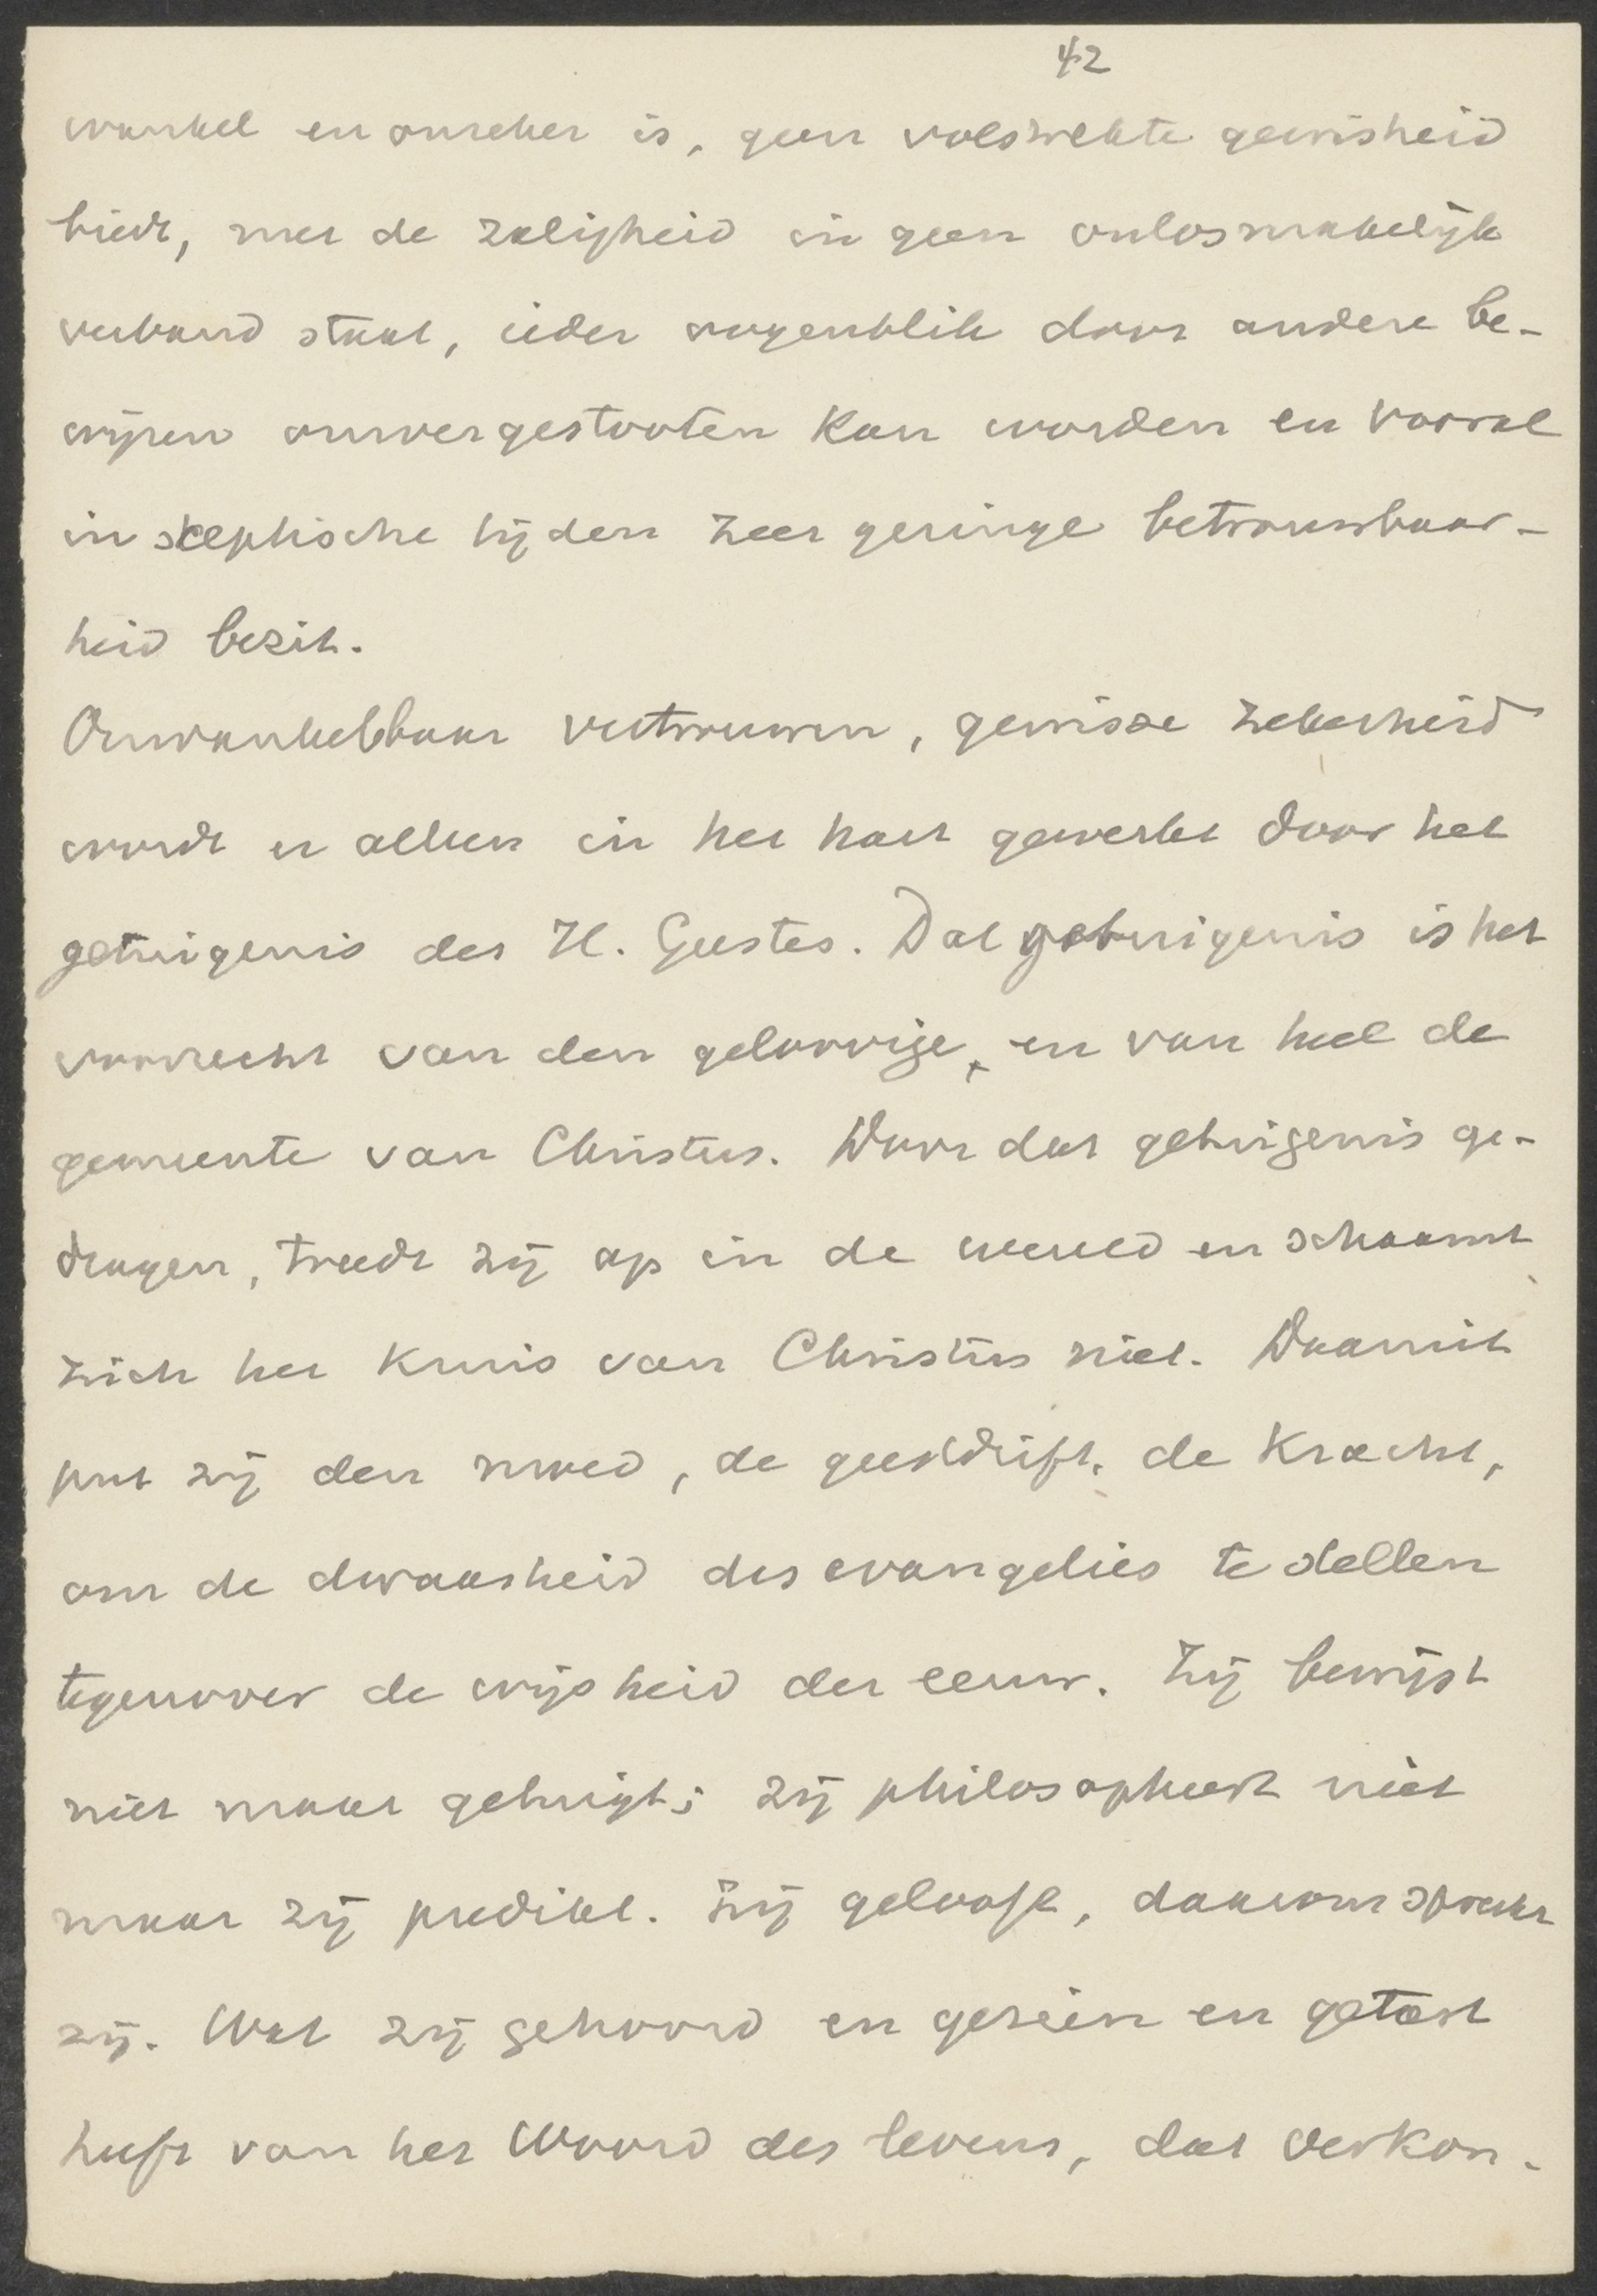 42
wankel en onzeker is, geen volstrekte gewisheid
biedt, met de zaligheid in geen onlosmakelijk
verband staat, ieder oogenblik door andere be-
wijzen omvergestooten kan worden en vooral
in skeptische tijden zeer geringe betrouwbaar-
heid bezit.
Onwankelbaar vertrouwen, gewisse zekerheid
wordt er alleen in het hart gewerkt door het
getuigenis des H. Geestes. Dat getuigenis is het
voorrecht van den geloovige, en van heel de
gemeente van Christus. Door dat getuigenis ge-
dragen, treedt zij op in de wereld en schaamt
zich het kruis van Christus niet. Daaruit
put zij den moed, de geestdrift, de kracht,
om de dwaasheid des evangelies te stellen
tegenover de wijsheid der eeuw. Zij bewijst
niet maar getuigt; zij philosopheert niet
maar zij predikt. Zij gelooft, daarom spreekt
zij. Wat zij gehoord en gezien en getast
heeft van het Woord des levens, dat verkon-